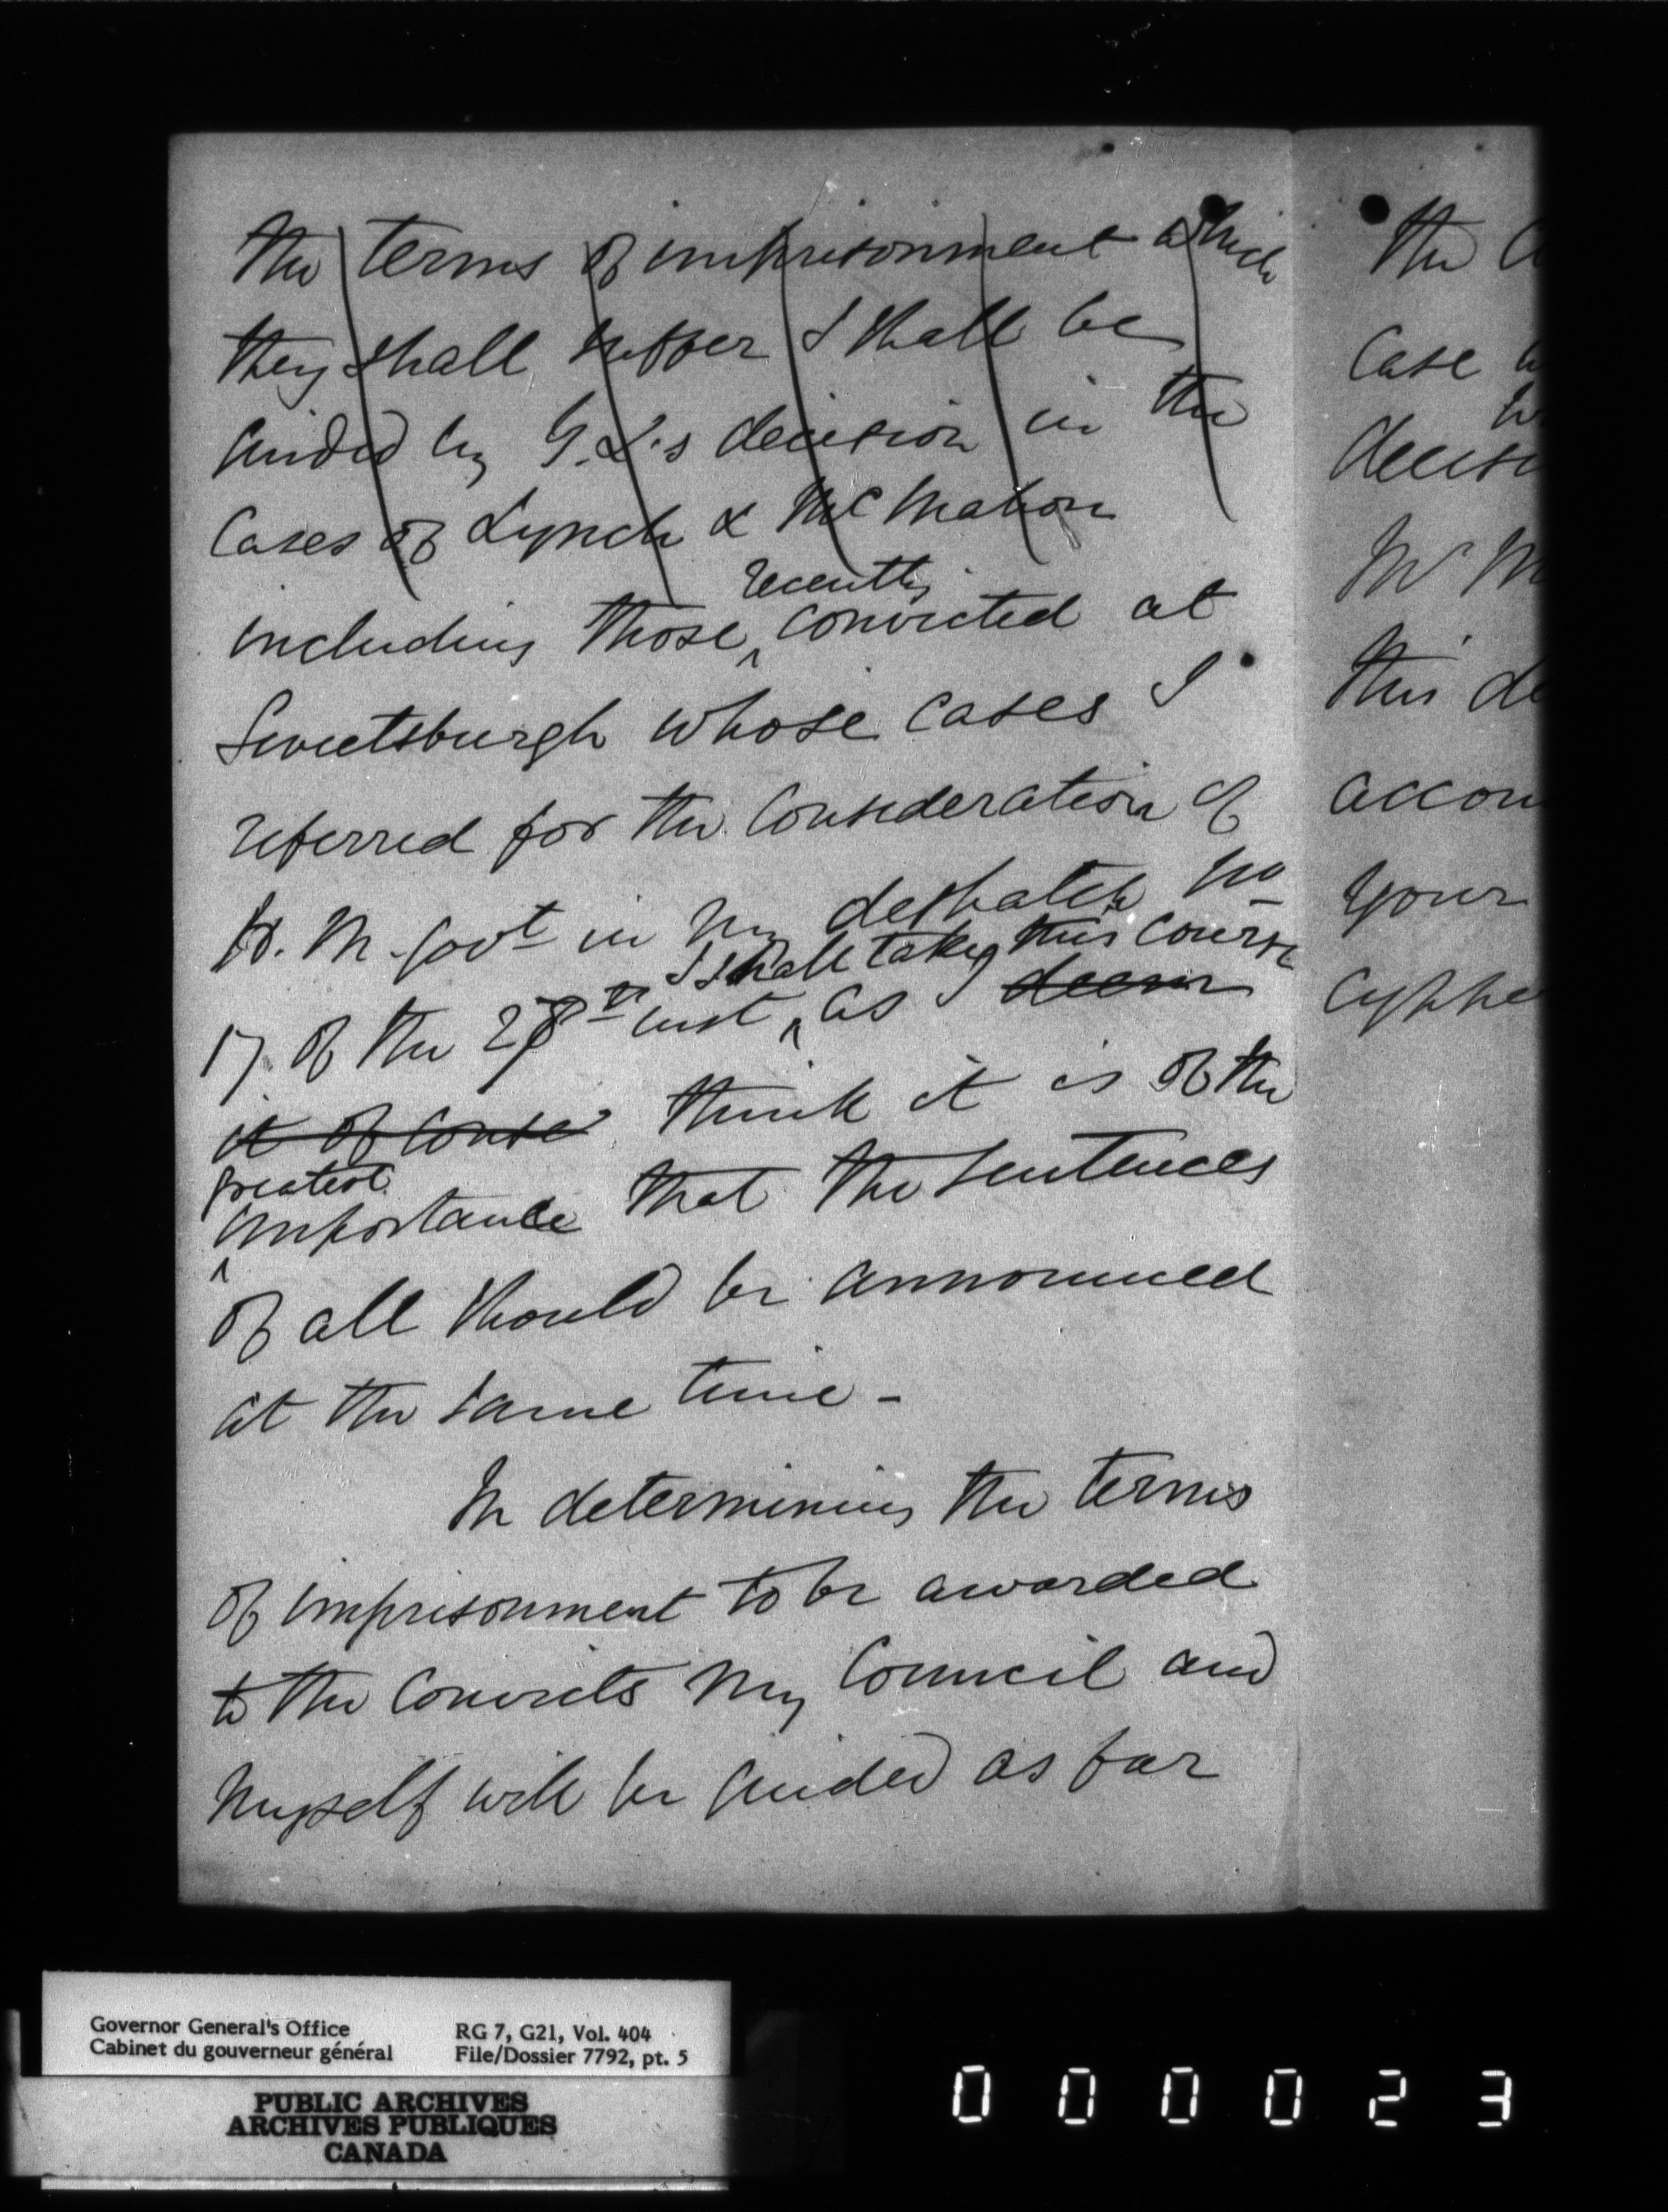 the terms of imprisonment which
they shall suffer I shall be
guided by G. L's decision in the
Cases of Lynch & McMahon
including those recently convicted at
Sweetsburgh whose cases I
referred for the Consideration of
H. M. Govt in my despatch No
17 of the 28th inst, I shall take this course as I deem
it of conse think it is of the
greatest importance that the sentences
of all should be announced
at the same time -
In determining the terms
of imprisonment to be awarded
to the convicts my Council and
myself will be guided as far
the
Case
decisi
Mc M
this de
accom
your
cyphe
Governor General's Office
Cabinet du gouverneur général
RG 7, G21, Vol. 404
File/Dossier 7792, pt. 5
PUBLIC ARCHIVES
ARCHIVES PUBLIQUES
CANADA
000023